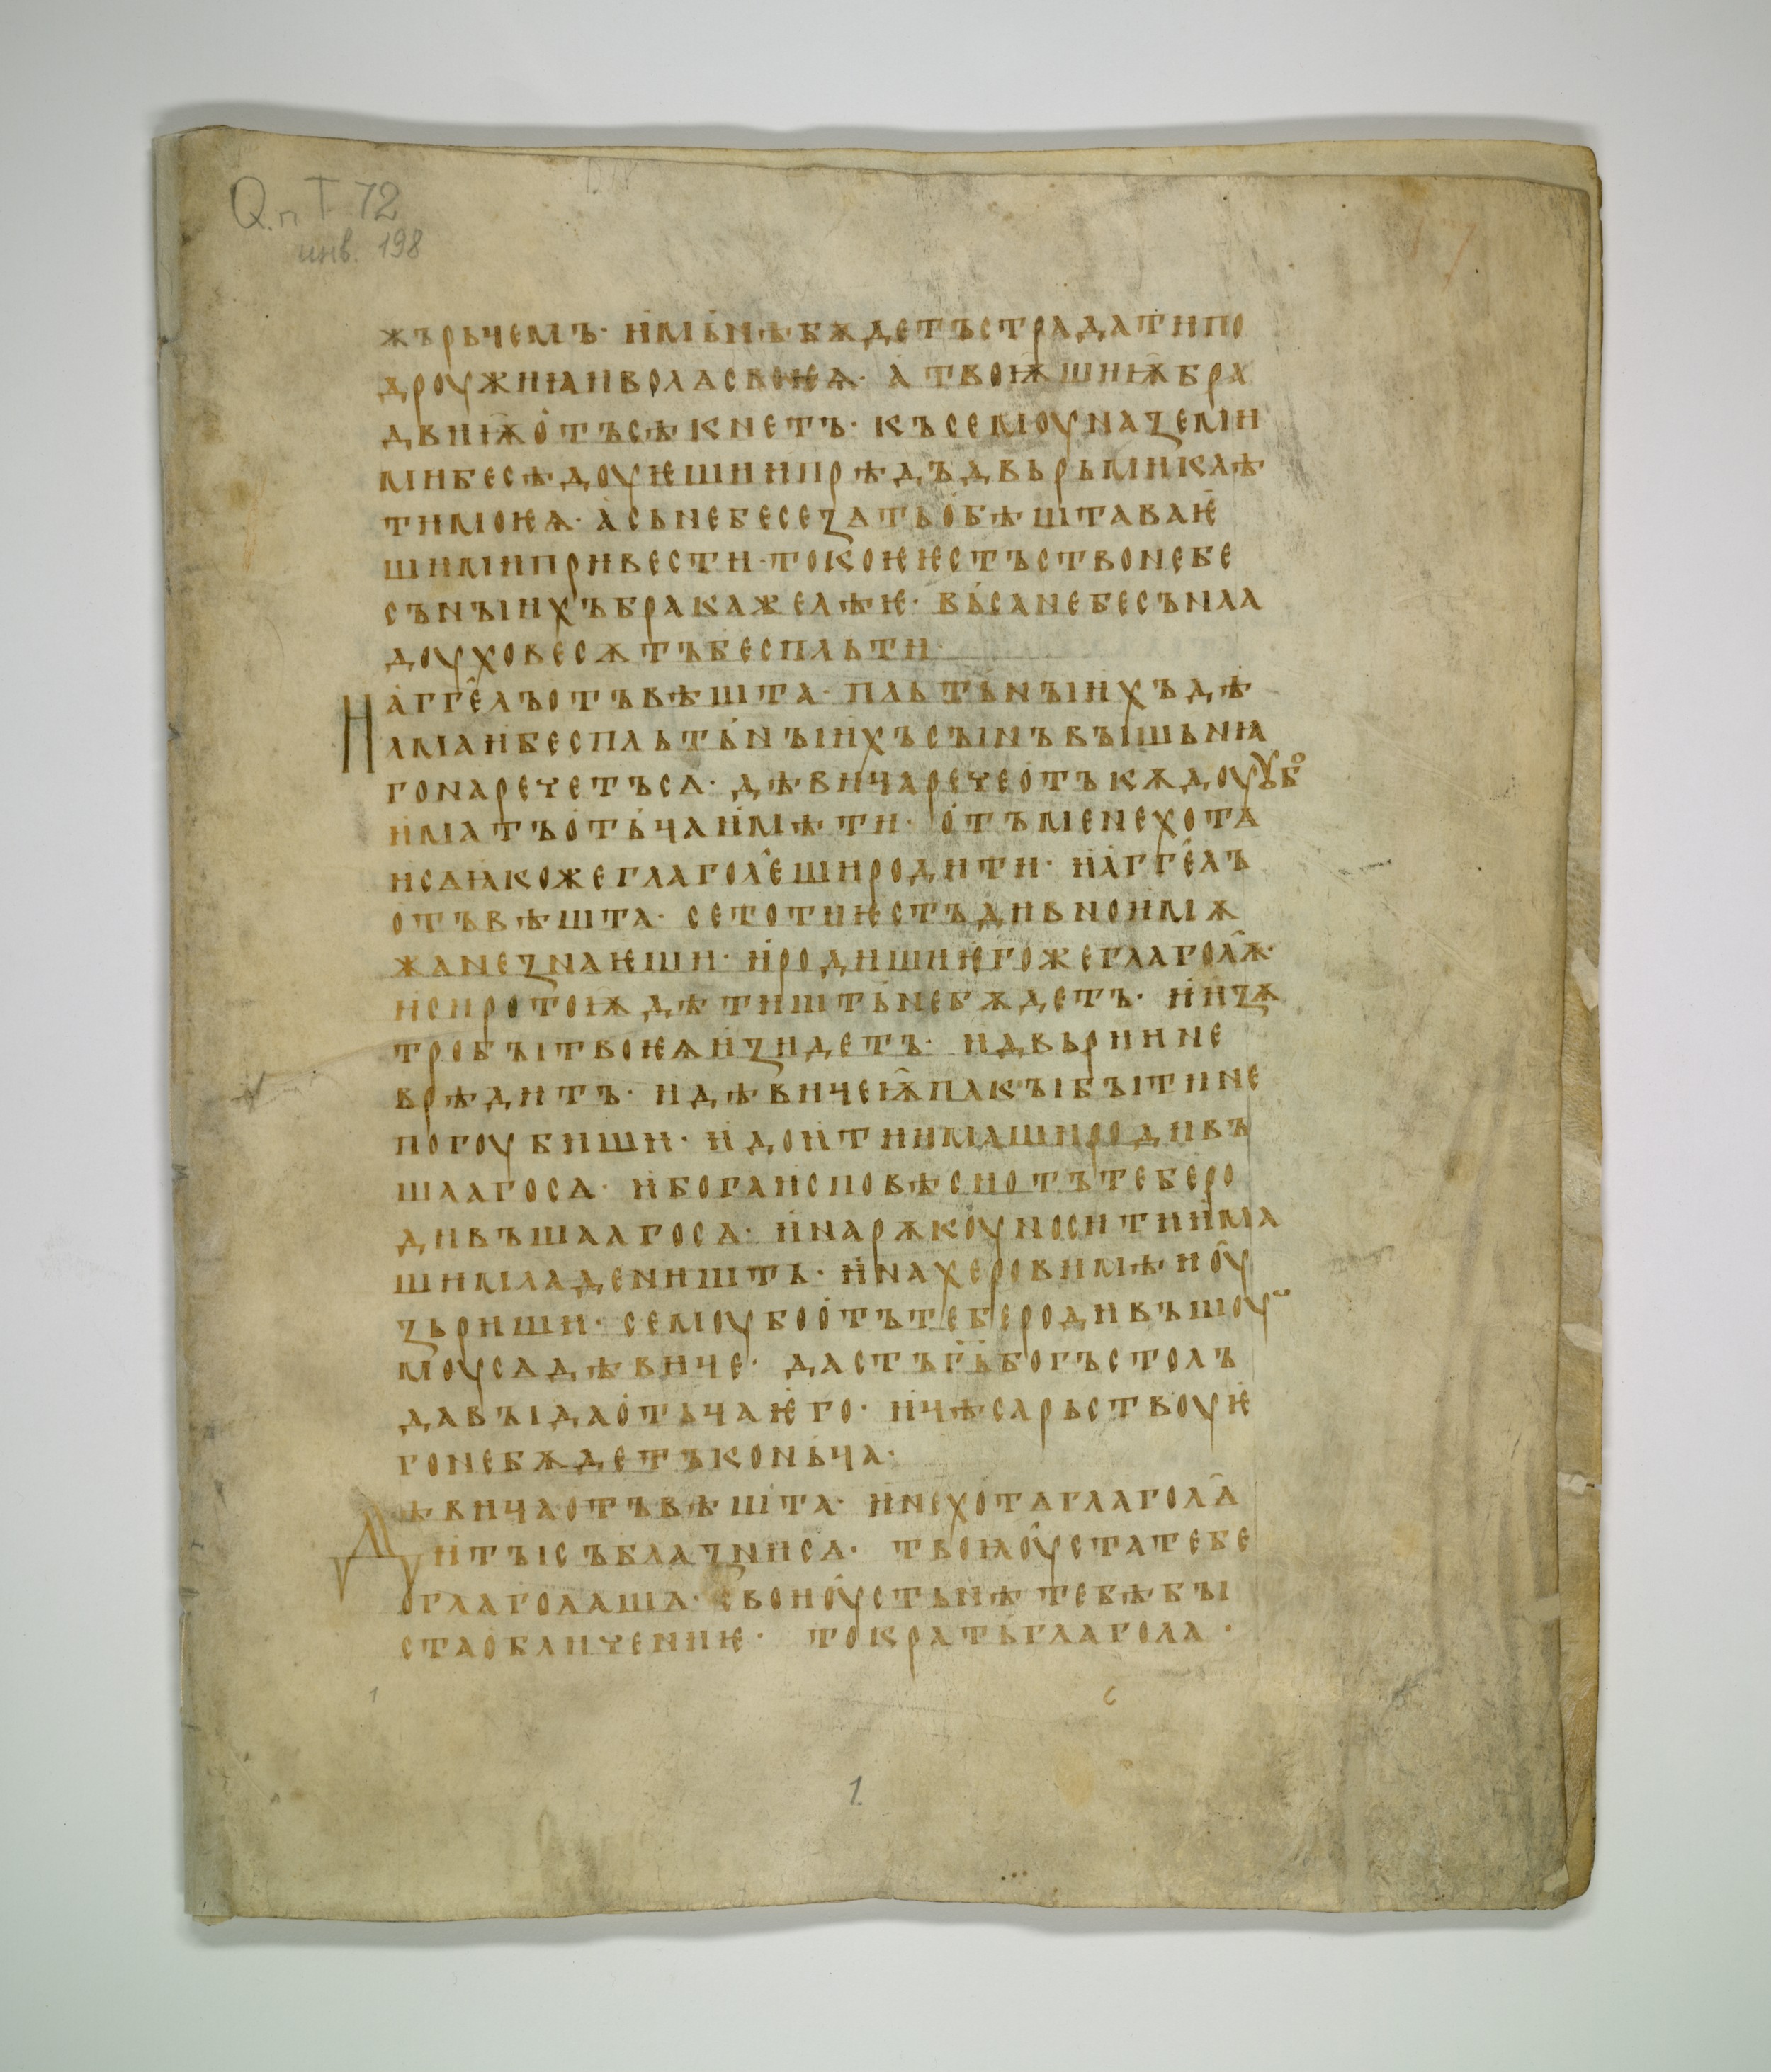 Q.п I 72
инв. 198
жърьчемъ· имьнѣ бѫдетъ страдати по
дроужиꙗ и вола своѥѧ· а твоѭ шиѭ бра
двиѭ отъсѣкнетъ· къ семоу на ꙁеми
ми бесѣдоуѥши и прѣдъ двьрьми клѣ
ти моѥѧ· а сь небесе ꙁать обѣштаваѥ
ши ми привести· то коѥ ѥстъство небе
сьнꙑихъ брака желѣѥ· вьса небесьнаа
доухове сѫтъ бес пльти·
И аггелъ отъвѣшта· пльтьнꙑихъ дѣ
лма и беспльтьнꙑихъ сꙑнъ вꙑшьнꙗ
го наречетъ са· дѣвича рече отъ кѫдоу оубо
иматъ отьча имѣти· отъ мене хота
и са ꙗкоже глаголеши родити· и аггелъ
отъвѣшта· се то ти ѥстъ дивьно и мѫ
жа не ꙁнаѥши· и родиши ѥгоже глаголѭ·
и спротоѭ дѣтишть не бѫдетъ· и иꙁ ѫ
тробꙑ твоѥѧ иꙁидетъ· и двьрии не
врѣдитъ· и дѣвичеѭ пакꙑ бꙑти не
погоубиши· и доити имаши родивъ
шааго са· и бога исповѣси отъ тебе ро
дивъшааго са· и на рѫкоу носити има
ши младеништь· и на херовимѣ и оу
ꙁьриши· семоу бо отъ тебе родивъшоуоу
моу са дѣвиче· дастъ гь богъ столъ
давꙑда отьча ѥго· и чѣсарьствоу ѥ
го не бѫдетъ коньча·
Дѣвича отъвѣшта· и не хота глагола
и тꙑ съблаꙁни са· твоꙗ оуста тебе
оглаголаша· свои оустьнѣ тебѣ бꙑ
ста обличениѥ· то кратꙑ глагола·
1